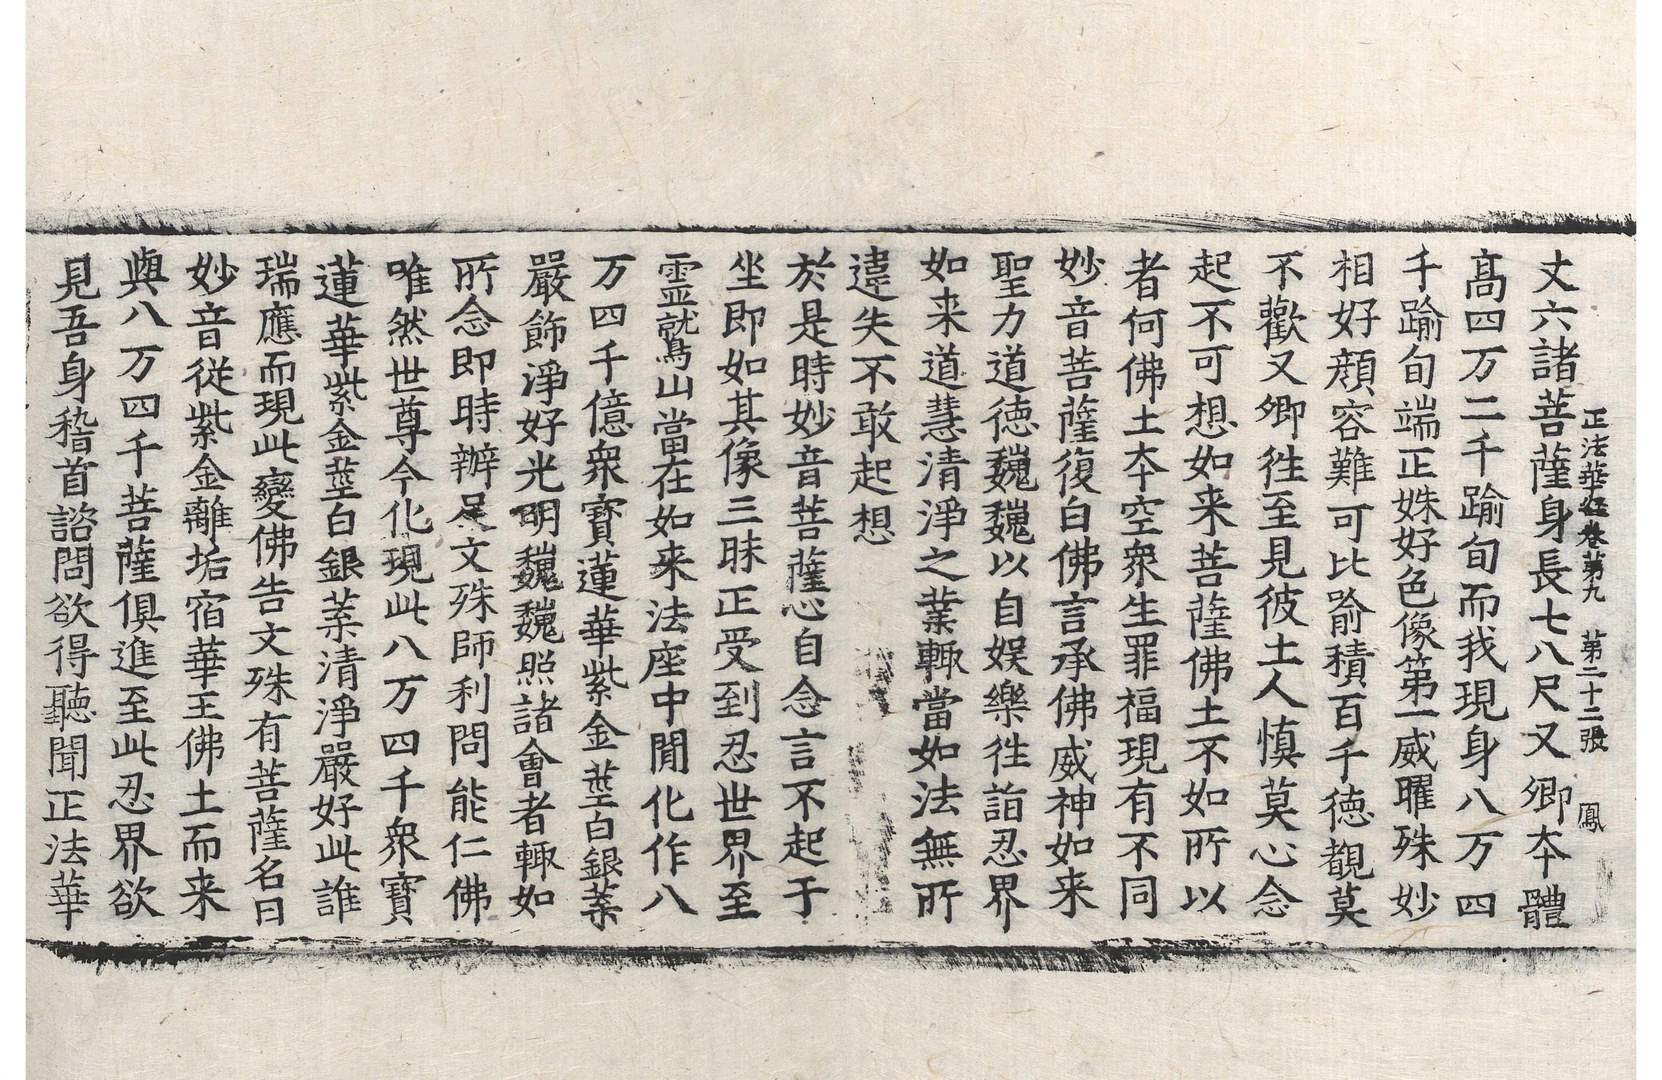 正法華経卷第九　第二十二張　鳳
丈六諸菩薩身長七八尺又卿夲體
髙四万二千踰旬而我現身八万四
千踰旬端正姝好色像第一威曜殊妙
相好顔容難可比喻積百千徳覩莫
不歡又卿徃至見彼土人慎莫心念
起不可想如来菩薩佛土不如所以
者何佛土夲空衆生罪福現有不同
妙音菩薩復白佛言承佛威神如来
聖力道徳巍巍以自娱樂徃詣忍界
如来道慧清淨之業輙當如法無所
違失不敢起想
於是時妙音菩薩心自念言不起于
坐即如其像三昧正受到忍世界至
靈鷲山當在如来法座中間化作八
万四千億衆寶蓮華紫金莖白銀葉
嚴飾淨好光明巍巍照諸會者輙如
所念即時辦足文殊師利問能仁佛
唯然世尊今化現此八万四千衆寶
蓮華紫金莖白銀葉清淨嚴好此誰
瑞應而現此變佛告文殊有菩薩名曰
妙音從紫金離垢宿華王佛土而来
與八万四千菩薩俱進至此忍界欲
見吾身稽首諮問欲得聽聞正法華